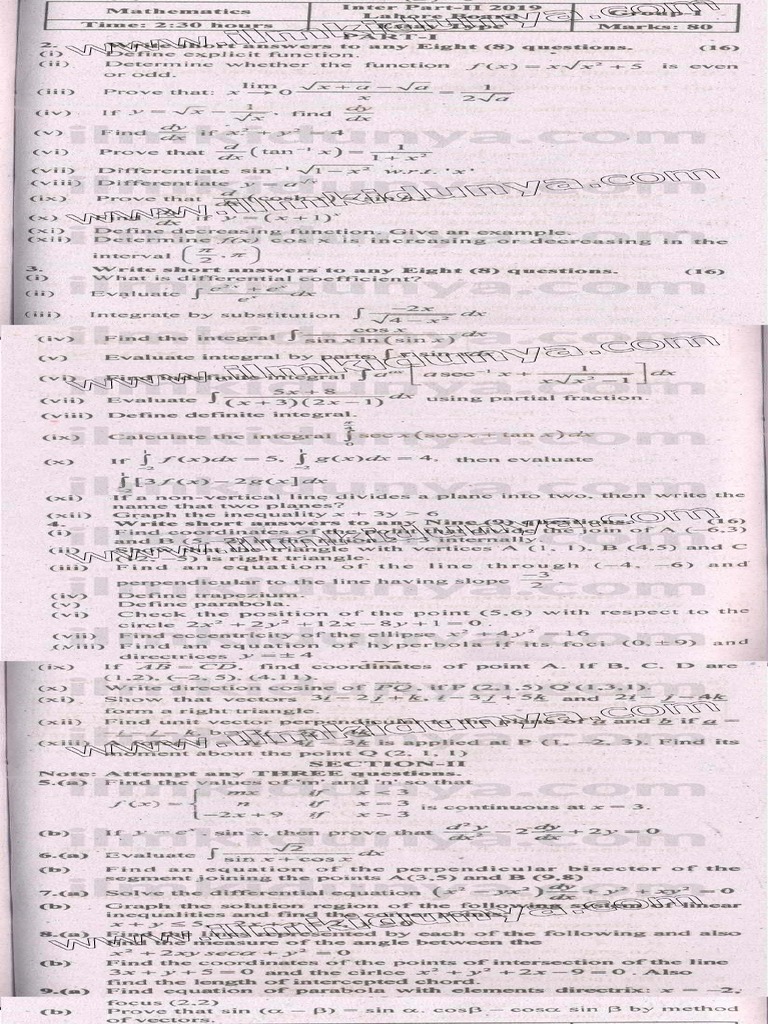 Mathematics Inter Part-II 2019 Group-I
Time: 2:30 hours Lahore Board Marks: 80
PART-I
2. short answers to any Eight (8) questions. (16)
(i) Define explicit function.
(ii) Determine whether the function f(x) = x√x² + 5 is even
or odd.
(iii) Prove that: lim x→0 (√x + a − √a)/x = 1/(2√a)
(iv) If y = √x − 1/√x, find dy/dx
(v) Find dy/dx if x² + y² = 4
(vi) Prove that d/dx (tan⁻¹ x) = 1/(1 + x²)
(vii) Differentiate sin⁻¹ √1 − x² w.r.t. 'x'
(viii) Differentiate y =
(ix) Prove that
(x) if y = (x + 1)ˣ
(xi) Define decreasing function. Give an example.
(xii) Determine f(x) cos x is increasing or decreasing in the
interval (π/2, π)
3. Write short answers to any Eight (8) questions. (16)
(i) What is differential coefficient?
(ii) Evaluate ∫ dx
(iii) Integrate by substitution ∫ −2x/√4 − x² dx
(iv) Find the integral ∫ cos x/(sin x ln(sin x)) dx
(v) Evaluate integral by parts
(vi) integral ∫ eᵃˣ [a sec⁻¹ x + 1/(x√x² − 1)] dx
(vii) Evaluate ∫ (5x + 8)/((x + 3)(2x − 1)) dx using partial fraction.
(viii) Define definite integral.
(ix) Calculate the integral ∫ sec x (sec x + tan x) dx
(x) If ∫ f(x)dx = 5, ∫ g(x)dx = 4, then evaluate
∫ [3f(x) − 2g(x)]dx
(xi) If a vertical line divides a plane into two, then write the
name that two planes?
(xii) Graph the inequality x + 3y > 6
4. Write short answers to any Nine (9) questions. (16)
(i) Find coordinates of the join of A (−6,3)
and B internally.
(ii) the triangle with vertices A (1, 1), B (4,5) and C
is right triangle.
(iii) Find an equation of the line through (−4, −6) and
perpendicular to the line having slope −3/2
(iv) Define trapezium.
(v) Define parabola.
(vi) Check the position of the point (5,6) with respect to the
circle 2x² + 2y² + 12x − 8y + 1 = 0.
(vii) Find eccentricity of the ellipse x² + 4y² = 16
(viii) Find an equation of hyperbola if its foci (0, ±9) and
directrices y = ±4
(ix) If AB = CD, find coordinates of point A. If B, C, D are
(1,2), (−2, 5), (4,11).
(x) Write direction cosine of PQ, if P (2,1,5) Q (1,3,1)
(xi) Show that vectors 3i − 2j + k, i − 3j + 5k and 2i + j − 4k
form a right triangle.
(xii) Find unit vector perpendicular a and b if a =
(xiii) 3k is applied at P (1, −2, 3). Find its
moment about the point Q (2, 1, 1)
SECTION-II
Note: Attempt any THREE questions.
5.(a) Find the values of 'm' and 'n' so that
f(x) = { mx if x < 3
n if x = 3 is continuous at x = 3.
−2x + 9 if x > 3
(b) If y = eˣ sin x, then prove that d²y/dx² − 2 dy/dx + 2y = 0
6.(a) Evaluate ∫ √2/(sin x + cos x) dx
(b) Find an equation of the perpendicular bisector of the
segment joining the points A(3,5) and B (9,8)
7.(a) Solve the differential equation (x² − yx²) dy/dx + y² + xy² = 0
(b) Graph the solution region of the following system of linear
inequalities and find the
8.(a) by each of the following and also
the measure of the angle between the
x² + 2xy sec α + y² = 0
(b) Find the coordinates of the points of intersection of the line
3x + y + 5 = 0 and the cirlce x² + y² + 2x − 9 = 0. Also
find the length of intercepted chord.
9.(a) Find equation of parabola with elements directrix: x = −2,
focus (2,2)
(b) Prove that sin (α − β) = sin α. cosβ − cosα sin β by method
of vectors.
www.ilmkidunya.com